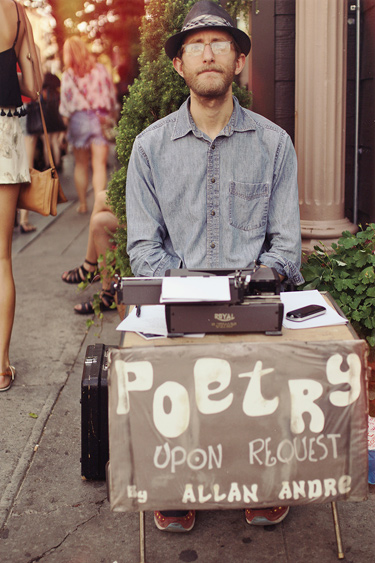 ROYAL
POEtRy
UPON REQUEST
By ALLAN ANDRE